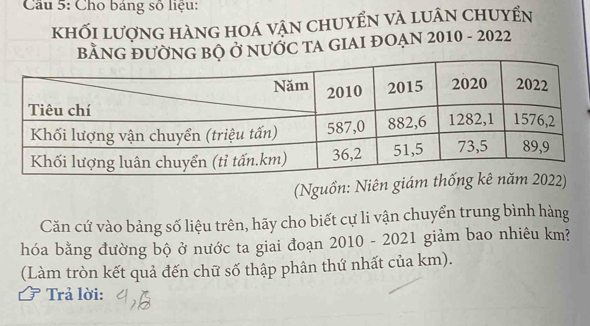 Câu 5: Cho bảng số liệu:
KHỐI LƯỢNG HÀNG HOÁ VẬN CHUYỂN VÀ LUÂN CHUYỂN
BẰNG ĐƯỜNG BỘ Ở NƯỚC TA GIAI ĐOẠN 2010 - 2022
Năm 2010 2015 2020 2022
Tiêu chí
Khối lượng vận chuyển (triệu tấn) 587,0 882,6 1282,1 1576,2
Khối lượng luân chuyển (tỉ tấn.km) 36,2 51,5 73,5 89,9
(Nguồn: Niên giám thống kê năm 2022)
Căn cứ vào bảng số liệu trên, hãy cho biết cự li vận chuyển trung bình hàng
hóa bằng đường bộ ở nước ta giai đoạn 2010 - 2021 giảm bao nhiêu km?
(Làm tròn kết quả đến chữ số thập phân thứ nhất của km).
Trả lời: